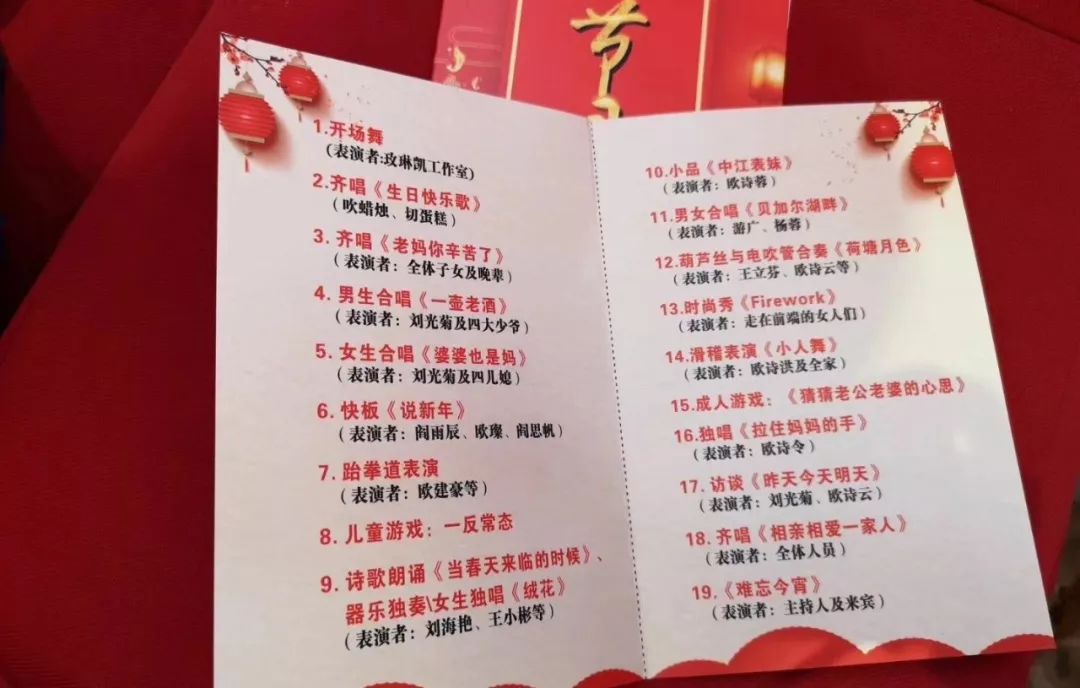 节
1.开场舞
(表演者:玫琳凯工作室)
2.齐唱《生日快乐歌》
(吹蜡烛、切蛋糕)
3. 齐唱《老妈你辛苦了》
(表演者：全体子女及晚辈)
4. 男生合唱《一壶老酒》
(表演者：刘光菊及四大少爷)
5. 女生合唱《婆婆也是妈》
(表演者：刘光菊及四儿媳)
6. 快板《说新年》
(表演者：阎雨辰、欧璨、阎思帆)
7. 跆拳道表演
(表演者：欧建豪等)
8. 儿童游戏：一反常态
9. 诗歌朗诵《当春天来临的时候》、
器乐独奏\女生独唱《绒花》
(表演者：刘海艳、王小彬等)
10.小品《中江表妹》
(表演者：欧诗蓉)
11.男女合唱《贝加尔湖畔》
(表演者：游广、杨蓉)
12.葫芦丝与电吹管合奏《荷塘月色》
(表演者：王立芬、欧诗云等)
13.时尚秀《Firework》
(表演者：走在前端的女人们)
14.滑稽表演《小人舞》
(表演者：欧诗洪及全家)
15.成人游戏：《猜猜老公老婆的心思》
16.独唱《拉住妈妈的手》
(表演者：欧诗令)
17. 访谈《昨天今天明天》
(表演者：刘光菊、欧诗云)
18. 齐唱《相亲相爱一家人》
(表演者：全体人员)
19.《难忘今宵》
(表演者：主持人及来宾)